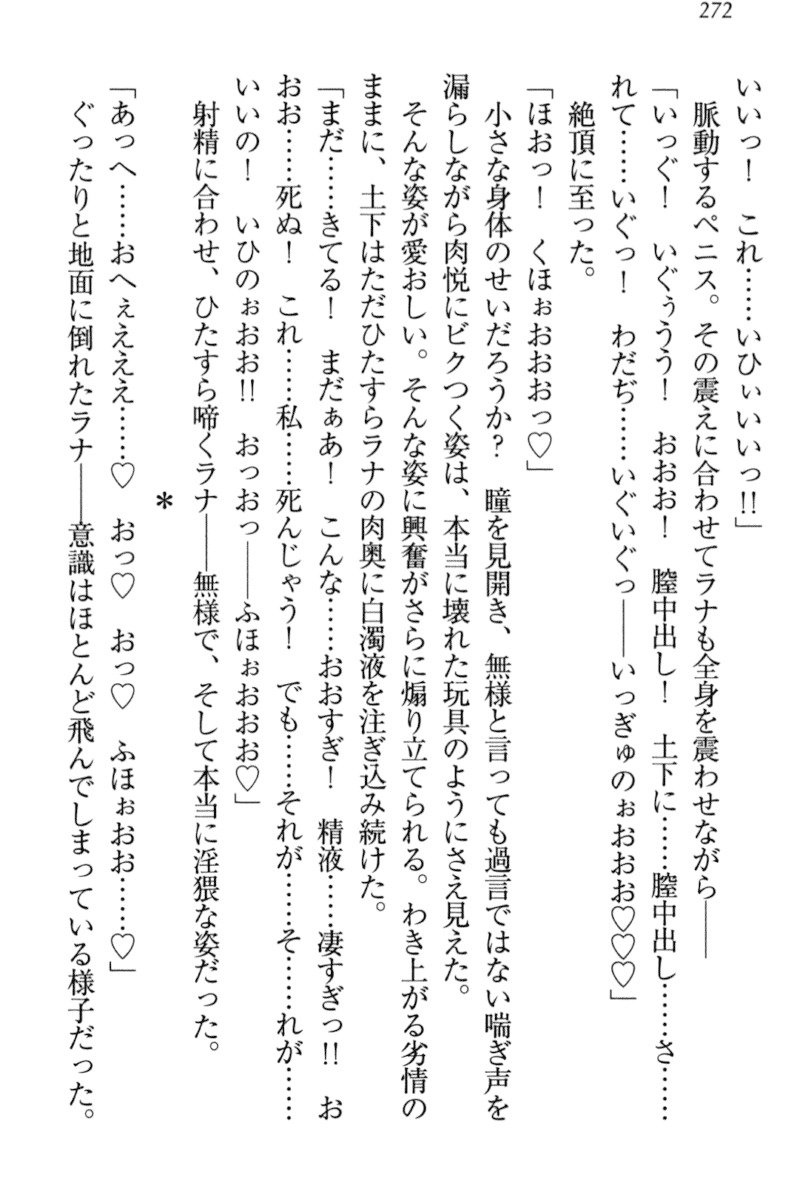 272
いいっ！　これ……いひぃいいっ!!」
　脈動するペニス。その震えに合わせてラナも全身を震わせながら――
「いっぐ！　いぐぅうう！　おおお！　膣中出し！　土下に……膣中出し……さ……
れて……いぐっ！　わだぢ……いぐいぐっ――いっぎゅのぉおおお♡♡♡」
　絶頂に至った。
「ほおっ！　くほぉおおおっ♡」
　小さな身体のせいだろうか？　瞳を見開き、無様と言っても過言ではない喘ぎ声を
漏らしながら肉悦にビクつく姿は、本当に壊れた玩具のようにさえ見えた。
　そんな姿が愛おしい。そんな姿に興奮がさらに煽り立てられる。わき上がる劣情の
ままに、土下はただひたすらラナの肉奥に白濁液を注ぎ込み続けた。
「まだ……きてる！　まだぁあ！　こんな……おおすぎ！　精液……凄すぎっ!!　お
おお……死ぬ！　これ……私……死んじゃう！　でも……それが……そ……れが……
いいの！　いひのぉおお!!　おっおっ――ふほぉおおお♡」
　射精に合わせ、ひたすら啼くラナ――無様で、そして本当に淫猥な姿だった。
＊
「あっへ……おへぇえええ……♡　おっ♡　おっ♡　ふほぉおお……♡」
　ぐったりと地面に倒れたラナ――意識はほとんど飛んでしまっている様子だった。